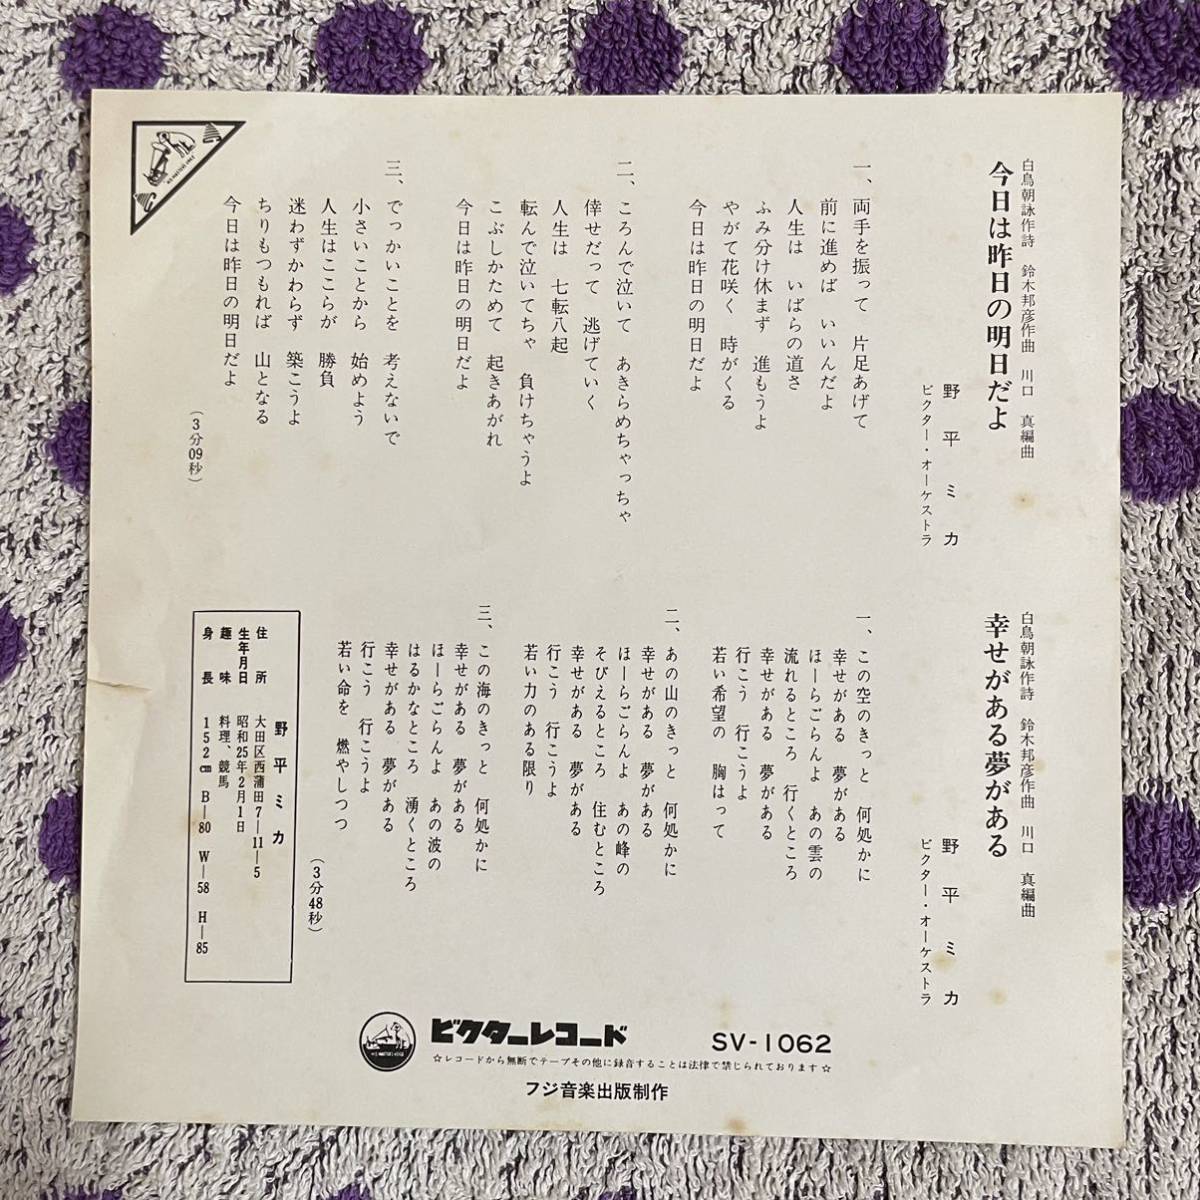 白鳥朝詠作詩　鈴木邦彦作曲　川口　真編曲
今日は昨日の明日だよ
野平ミカ
ビクター・オーケストラ
一、両手を振って　片足あげて
前に進めば　いいんだよ
人生は　いばらの道さ
ふみ分け休まず　進もうよ
やがて花咲く　時がくる
今日は昨日の明日だよ
二、ころんで泣いて　あきらめちゃっちゃ
倖せだって　逃げていく
人生は　七転八起
転んで泣いてちゃ　負けちゃうよ
こぶしかためて　起きあがれ
今日は昨日の明日だよ
三、でっかいことを　考えないで
小さいことから　始めよう
人生はここらが　勝負
迷わずかわらず　築こうよ
ちりもつもれば　山となる
今日は昨日の明日だよ
（3分09秒）
白鳥朝詠作詩　鈴木邦彦作曲　川口　真編曲
幸せがある夢がある
野平ミカ
ビクター・オーケストラ
一、この空のきっと　何処かに
幸せがある　夢がある
ほーらごらんよ　あの雲の
流れるところ　行くところ
幸せがある　夢がある
行こう　行こうよ
若い希望の　胸はって
二、あの山のきっと　何処かに
幸せがある　夢がある
ほーらごらんよ　あの峰の
そびえるところ　住むところ
幸せがある　夢がある
行こう　行こうよ
若い力のある限り
三、この海のきっと　何処かに
幸せがある　夢がある
ほーらごらんよ　あの波の
はるかなところ　湧くところ
幸せがある　夢がある
行こう　行こうよ
若い命を　燃やしつつ
（3分48秒）
野平ミカ
住所　大田区西蒲田7—11—5
生年月日　昭和25年2月1日
趣味　料理、競馬
身長　152cm　B—80　W—58　H—85
ビクターレコード　SV-1062
☆レコードから無断でテープその他に録音することは法律で禁じられております☆
フジ音楽出版制作